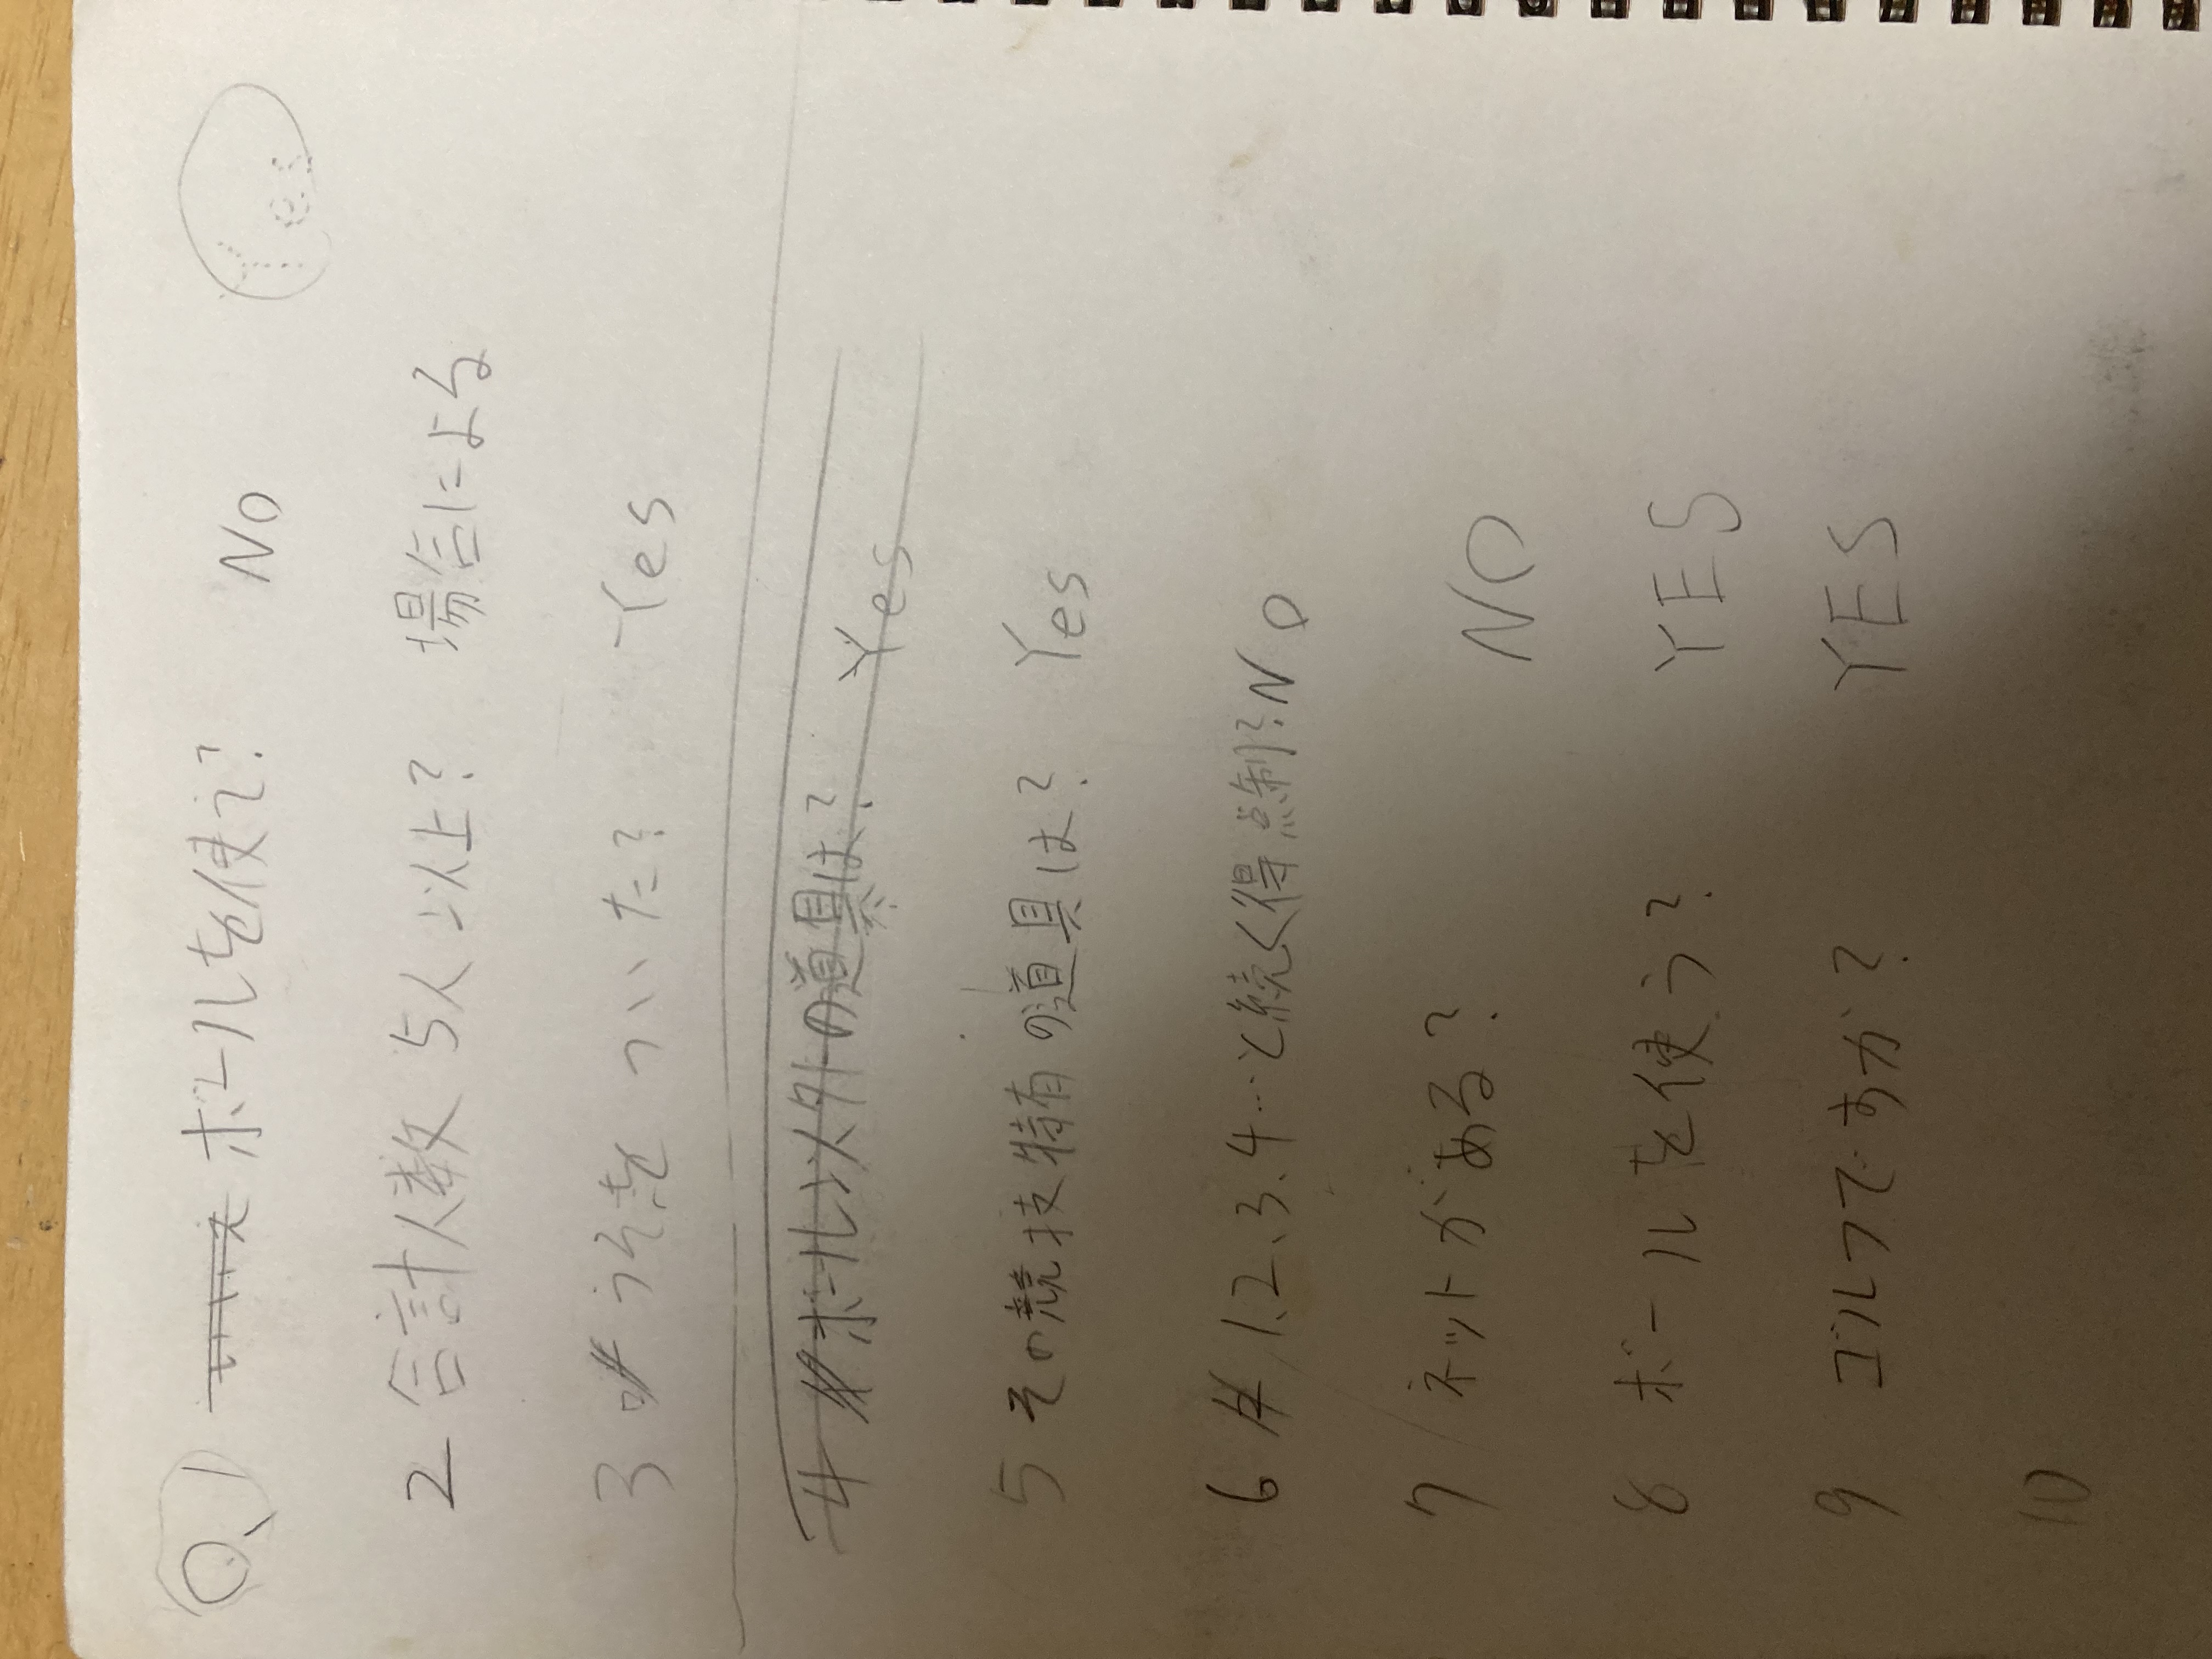 Q.1 いいえ ボールを使う? NO Yes
2 合計人数 5人以上? 場合による
3 うそをついた? Yes
4 ボール以外の道具は? Yes
5 その競技特有の道具は? Yes
6 1、2、3、4…と続く得点制? NO
7 ネットがある? NO
8 ボールを使う? YES
9 ゴルフですか? YES
10